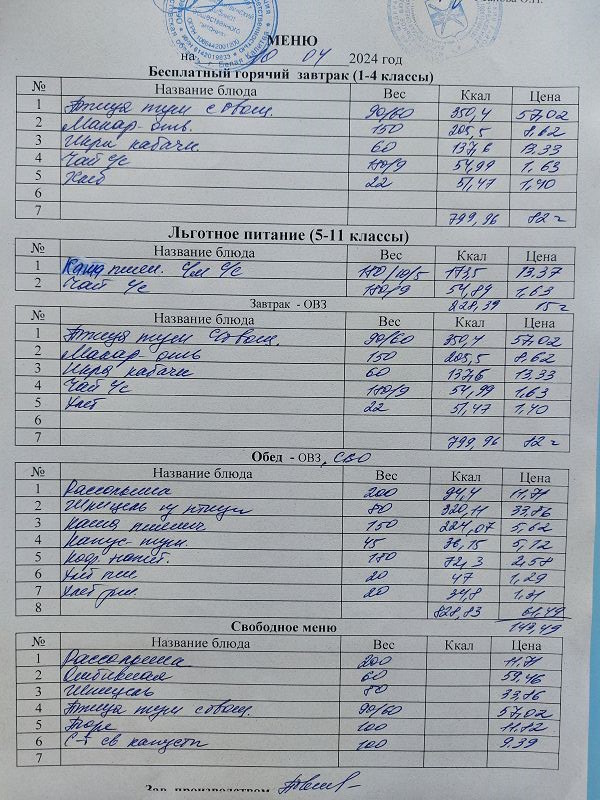 МЕНЮ
на 30 04 2024 год
Бесплатный горячий завтрак (1-4 классы)
№ Название блюда Вес Ккал Цена
1 Птица туш с овощ. 90/60 350,4 57,02
2 Макар. отв. 150 205,5 8,62
3 Икра кабачк. 60 137,6 13,33
4 Чай с/с 180/9 54,99 1,63
5 Хлеб 22 51,47 1,40
6
7 799,96 82
Льготное питание (5-11 классы)
№ Название блюда Вес Ккал Цена
1 Каша пшен. с/с 180/10/5 173,5 13,37
2 Чай с/с 180/9 54,89 1,63
228,39 15
Завтрак - ОВЗ
№ Название блюда Вес Ккал Цена
1 Птица туш с овощ. 90/60 350,4 57,02
2 Макар отв 150 205,5 8,62
3 Икра кабачк 60 137,6 13,33
4 Чай с/с 180/9 54,99 1,63
5 Хлеб 22 51,47 1,40
6
7 799,96 82
Обед - ОВЗ, СВО
№ Название блюда Вес Ккал Цена
1 Рассольник 200 94,4 11,71
2 Шницель из птицы 80 320,11 33,86
3 Каша пшенич 150 224,07 5,62
4 Капус- туш. 45 36,15 5,12
5 Коф. напит. 180 72,3 2,58
6 Хлеб пш. 20 47 1,29
7 Хлеб рж. 20 34,8 1,31
8 828,83 61,49
143,49
Свободное меню
№ Название блюда Вес Ккал Цена
1 Рассольник 200 11,71
2 Отбивная 60 59,46
3 Шницель 80 33,86
4 Птица туш с овощ. 90/60 57,02
5 Пюре 100 11,12
6 С-т св капусты 100 9.39
7
Зав. производством